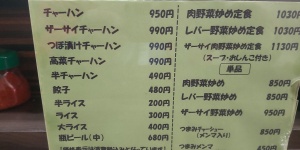 チャーハン 950円
ザーサイチャーハン 990円
つぼ漬けチャーハン 990円
高菜チャーハン 990円
半チャーハン 490円
餃子 480円
半ライス 200円
ライス 300円
大ライス 400円
瓶ビール(中) 680円
肉野菜炒め定食 1030円
レバー野菜炒め定食 1130円
ザーサイ肉野菜炒め定食 1130円
(スープ・おしんこ付き)
単品
肉野菜炒め 850円
レバー野菜炒め 950円
ザーサイ肉野菜炒め 950円
つまみチャーシュー 850円
(メンマ入り)
つまみメンマ